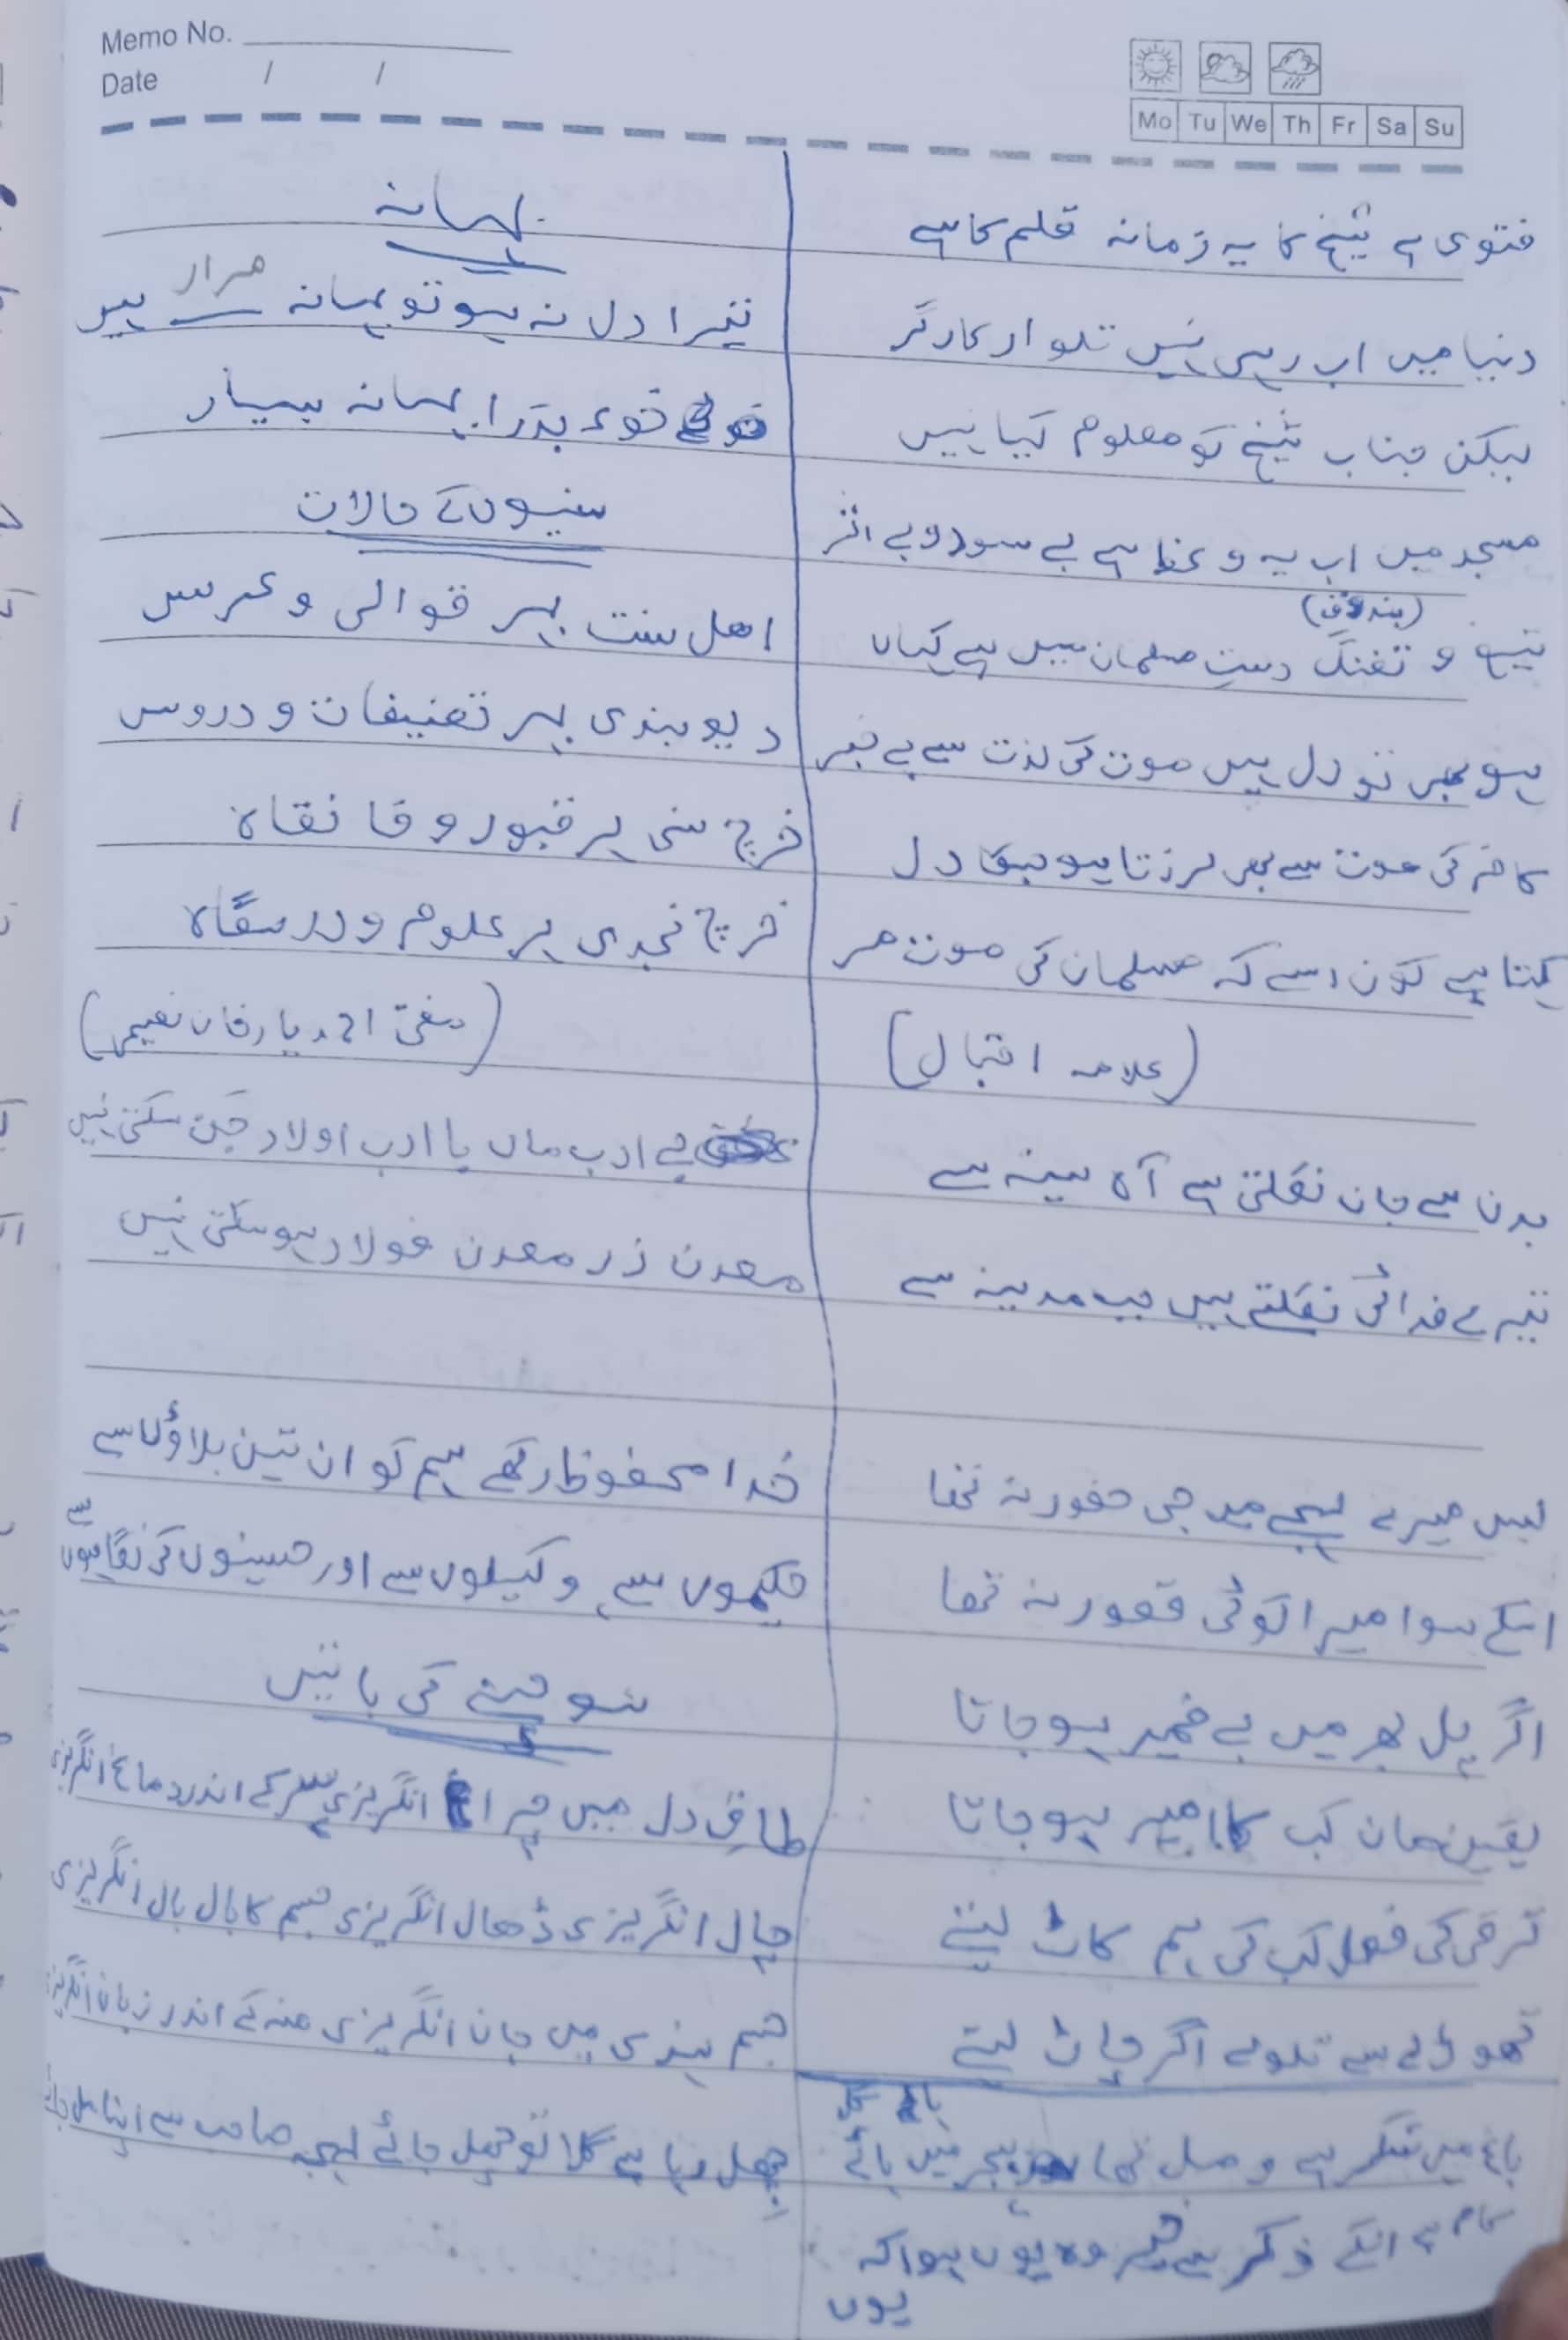 Memo No.
Date / /
Mo Tu We Th Fr Sa Su
فتوی ہے شیخ کا یہ زمانہ قلم کا ہے
دنیا میں اب رہی نہیں تلوار کارگر
لیکن جناب شیخ کو معلوم کیا نہیں
مسجد میں اب یہ وعظ ہے بے سود و بے اثر
(بندوق)
تیغ و تفنگ دست مسلمان میں ہے کہاں
ہو بھی تو دل ہیں موت کی لذت سے بے خبر
کافر کی موت سے بھی لرزتا ہو جسکا دل
کہتا ہے کون اسے کہ مسلمان کی موت مر
(علامہ اقبال)
بدن سے جان نکلتی ہے آہ سینہ سے
تیرے فدائی نکلتے ہیں جب مدینہ سے
بس میرے لہجے میں جی حضور نہ تھا
اسکے سوا میرا کوئی قصور نہ تھا
اگر پل بھر میں بے ضمیر ہو جاتا
یقین مان کب کا امیر ہو جاتا
ترقی کی فصل کب کی ہم کاٹ لیتے
تھوڑے سے تلوے اگر چاٹ لیتے
باغ میں شکر ہے وصل تھا ہجر میں ہائے
ہائے گل
کام ہے انکے ذکر سے خیر وہ یوں ہوا کہ
یوں
بہانہ
تیرا دل نہ ہو تو بہانہ ہزار ہیں
خوئے بد را بہانہ بسیار
سنیوں کے حالات
اھل سنت بہر قوالی و عرس
دیوبندی بہر تصنیفات و دروس
خرچ سنی بر قبور و خانقاہ
خرچ نجدی بر علوم و درسگاہ
(مفتی احمد یار خان نعیمی)
بے ادب ماں با ادب اولاد جن سکتی نہیں
معدن زر معدن فولاد ہو سکتی نہیں
خدا محفوظ رکھے ہم کو ان تین بلاؤں سے
حکیموں سے وکیلوں سے اور حسینوں کی نگاہوں سے
سوچنے کی باتیں
طاق دل میں چراغ انگریزی سر کے اندر دماغ انگریزی
چال انگریزی ڈھال انگریزی جسم کا بال بال انگریزی
جسم ہندی میں جان انگریزی منہ کے اندر زبان انگریزی
چھل رہا ہے گلا تو چھل جائے لہجہ صاحب سے اپنا مل جائے